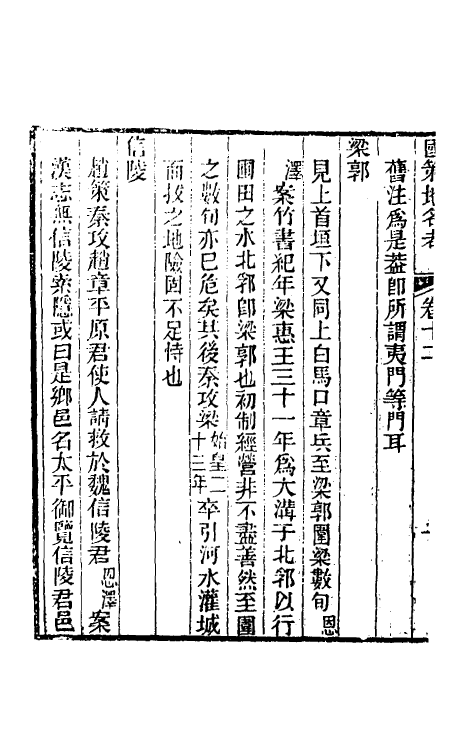 國策地名考 卷十二
舊注爲是葢卽所謂夷門等門耳
梁郭
見上首垣下又同上白馬口章兵至梁郭圍梁數旬恩
澤案竹書紀年梁惠王三十一年爲大溝于北郛以行
圃田之水北郛卽梁郭也初制經營非不盡善然至圍
之數旬亦已危矣其後秦攻梁始皇二十三年卒引河水灌城
而拔之地險固不足恃也
信陵
趙策秦攻趙章平原君使人請救於魏信陵君恩澤案
漢志無信陵索隱或曰是鄉邑名太平御覽信陵君邑